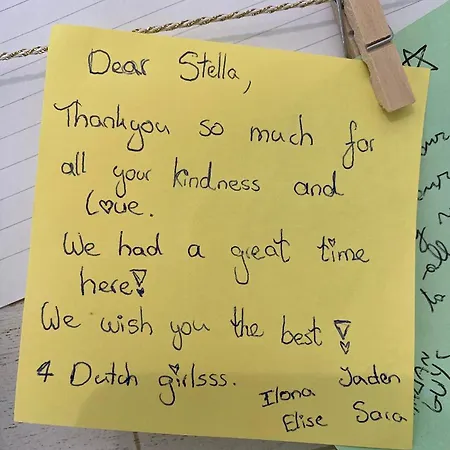 Dear Stella,
Thankyou so much for
all your kindness and
Love.
We had a great time
here!
We wish you the best!
4 Dutch girlsss.
Ilona Jaden
Elise Sara